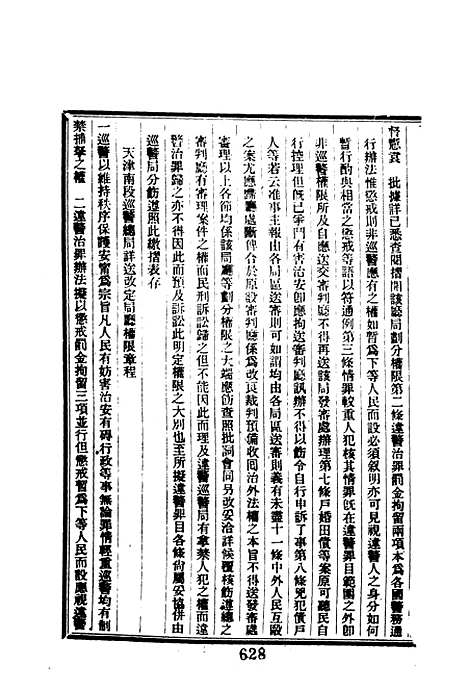 督憲袁　批據詳已悉查閱摺開該廳局劃分權限第二條違警治罪罰金拘留兩項本爲各國警務通
行辦法惟懲戒則非巡警應有之權如暫爲下等人民而設必須敘明亦可見視違警人之身分如何
暫行酌與相當之懲戒等語以符通例第三條情罪較重人犯核其情罪既在違警罪目範圍之外卽
非巡警權限所及自應送交審判廳不得再送該局發審處辦理第七條戶婚田債等案原可聽民自
行控理但旣已爭鬥有害治安卽應拘送審判廳訊辦不得以飭令自行申訴了事第八條兇犯債戶
人等若云准事主報由各局區送審則可如謂均由各局區送審則義有未盡十一條中外人民互毆
之案尤應歸廳處斷俾合於原設審判廳係爲改良裁判預備收回治外法權之本旨不得送發審處
審理以上各節均係該局廳等劃分權限之大端應飭查照批詞會同另改妥洽詳候覆核飭遵總之
審判廳有審理案件之權而民刑訴訟歸之但不能因此而理及違警巡警局有拿禁人犯之權而違
警治罪歸之亦不得因此而預及訴訟此明定權限之大別也至所擬違警罪目各條尚屬妥協併由
巡警局分飭遵照此繳摺表存
天津南段巡警總局詳送改定局廳權限章程
一巡警以維持秩序保護安甯爲宗旨凡人民有妨害治安有礙行政等事無論罪情輕重巡警均有制
禁捕拏之權　二違警治罪辦法擬以懲戒罰金拘留三項並行但懲戒暫爲下等人民而設應視違警
628